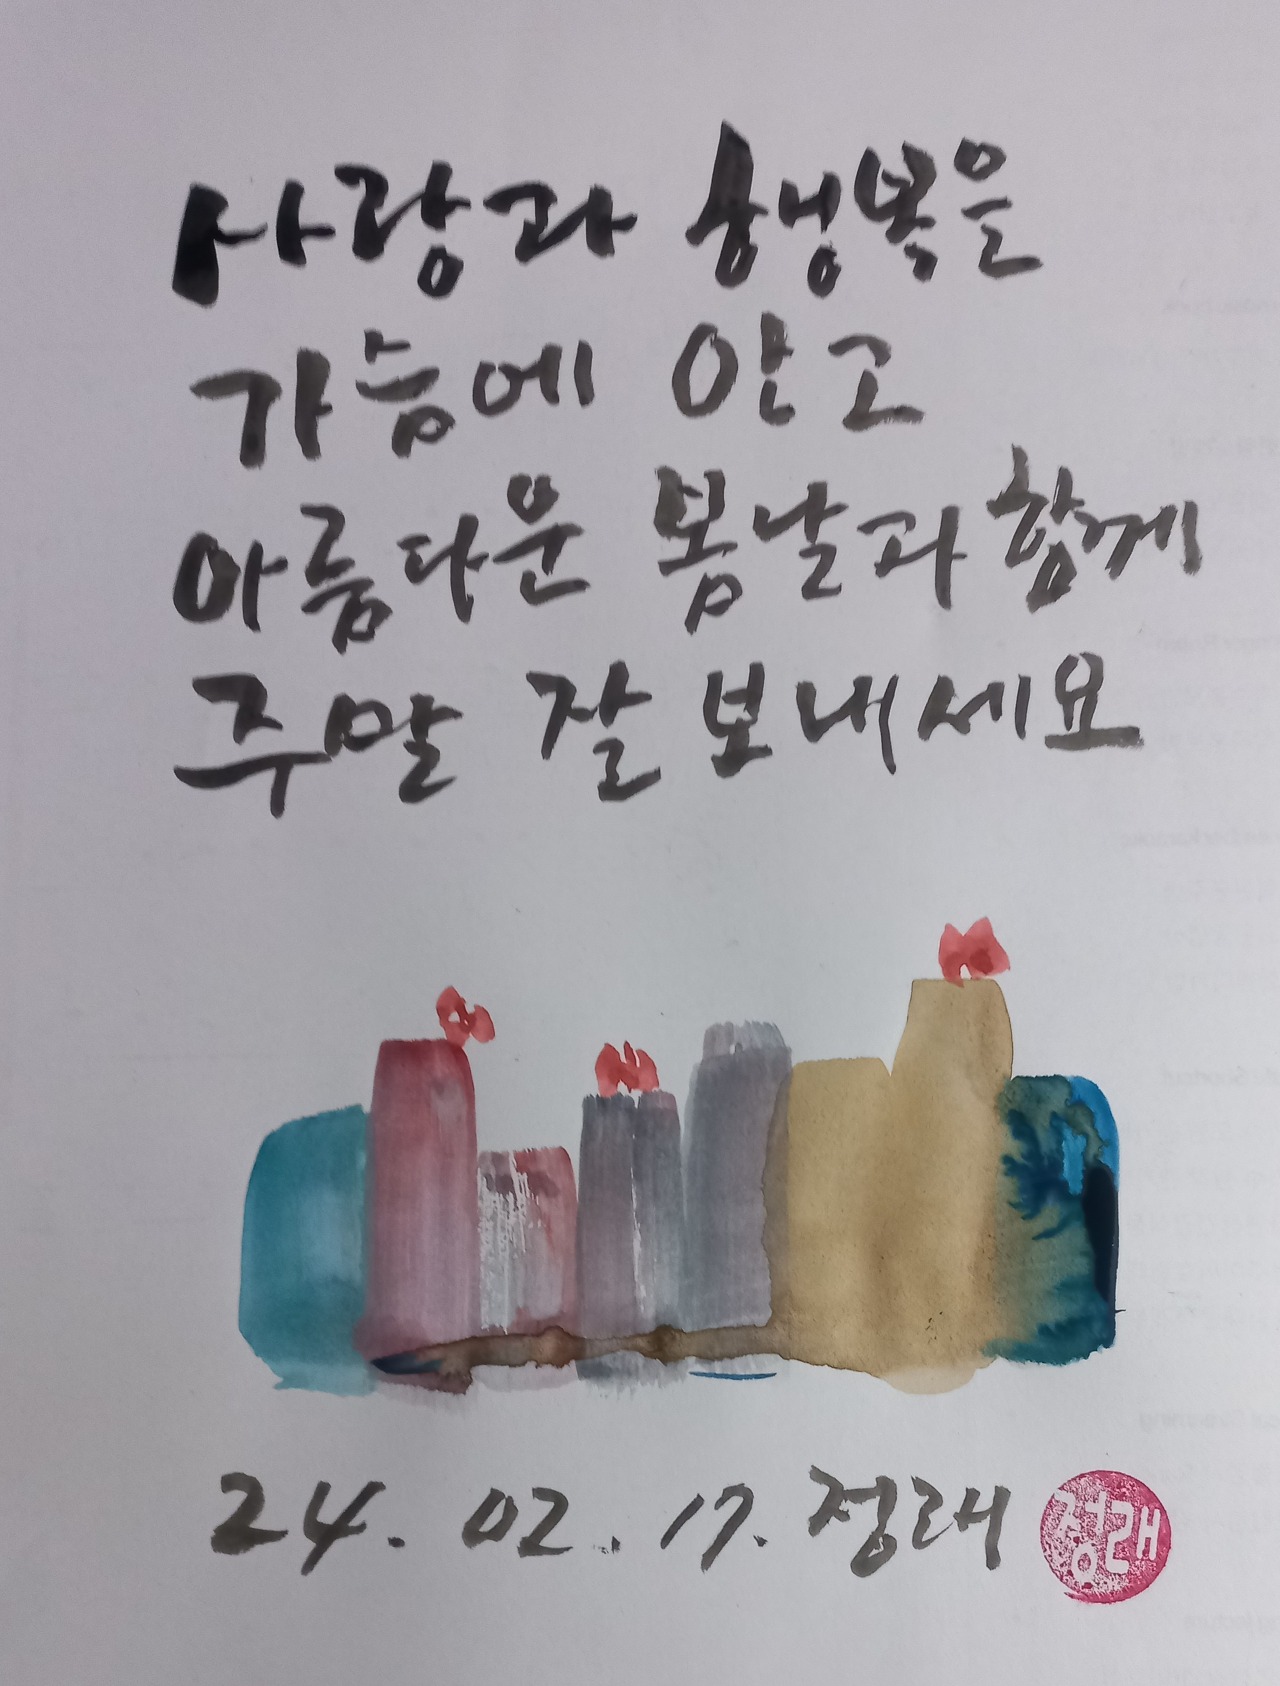 사랑과 행복을
가슴에 안고
아름다운 봄날과 함께
주말 잘 보내세요
24. 02. 17. 정래
정래